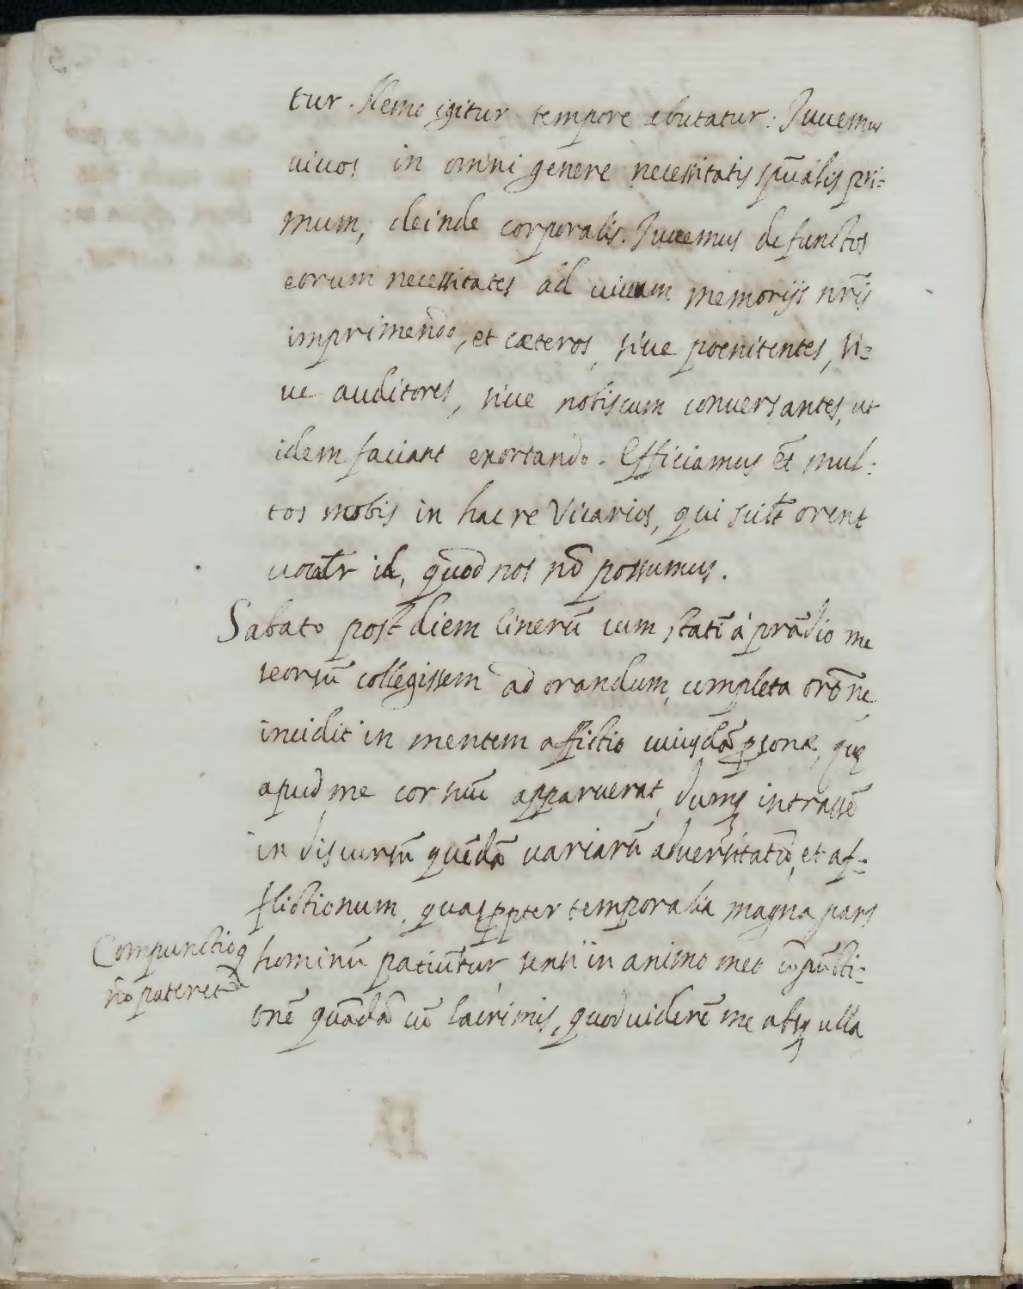 tur. Nemo igitur tempore abutatur: Juuemus
uiuos in omni genere necessitatis spūalis pri-
mum, deinde corporalis. Juuemus defunctos
eorum necessitates ad uiuam memorijs nr̄is
imprimendo, et cæteros, siue poenitentes, si-
ue auditores, siue nobiscum conuersantes, ut
idem faciant exortando. Efficiamus et̄ mul-
tos nobis in hac re Vicarios, qui orent
id, quod nos nō possumus.
Sabato post diem Cinerū cum statī à prādio me
seorsū collegissem ad orandum, completa or̄one
incidit in mentem afflictio cuiusdā p̱sonæ, quę
apud me cor suū apparuerat, dumq̱ intrassē
in discursū quēdā uariarū aduersitatū, et af-
flictionum, quas pp̱ter temporalia magna pars
Compunctio q
nō pateret
hominū patiūtur, sensi in animo meo cōpūcti-
onē quādā cū lacrimis, quod uiderē me absq̱ ulla